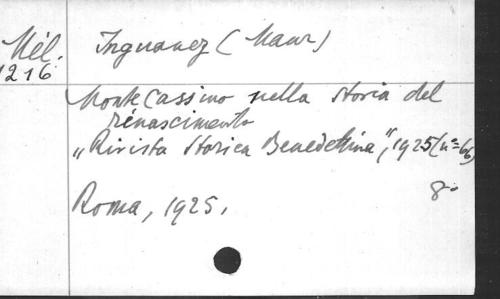 Mél.
1216
Inguanez (Maur)
Monte Cassino nella storia del
rénascimento
„Rivista Storica Benedettina", 1925 (n° 66)
8°
Roma, 1925.